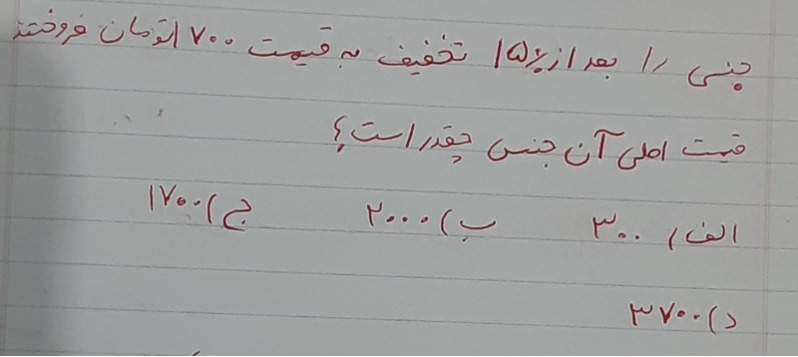 جنسی را بعد از ۱۵٪ تخفیف به قیمت ۱۷۰۰ تومان فروختند
قیمت اصلی آن جنس چقدر است؟
الف) ۳۰۰ ب) ۲۰۰۰ ج) ۱۷۰۰
د) ۳۷۰۰